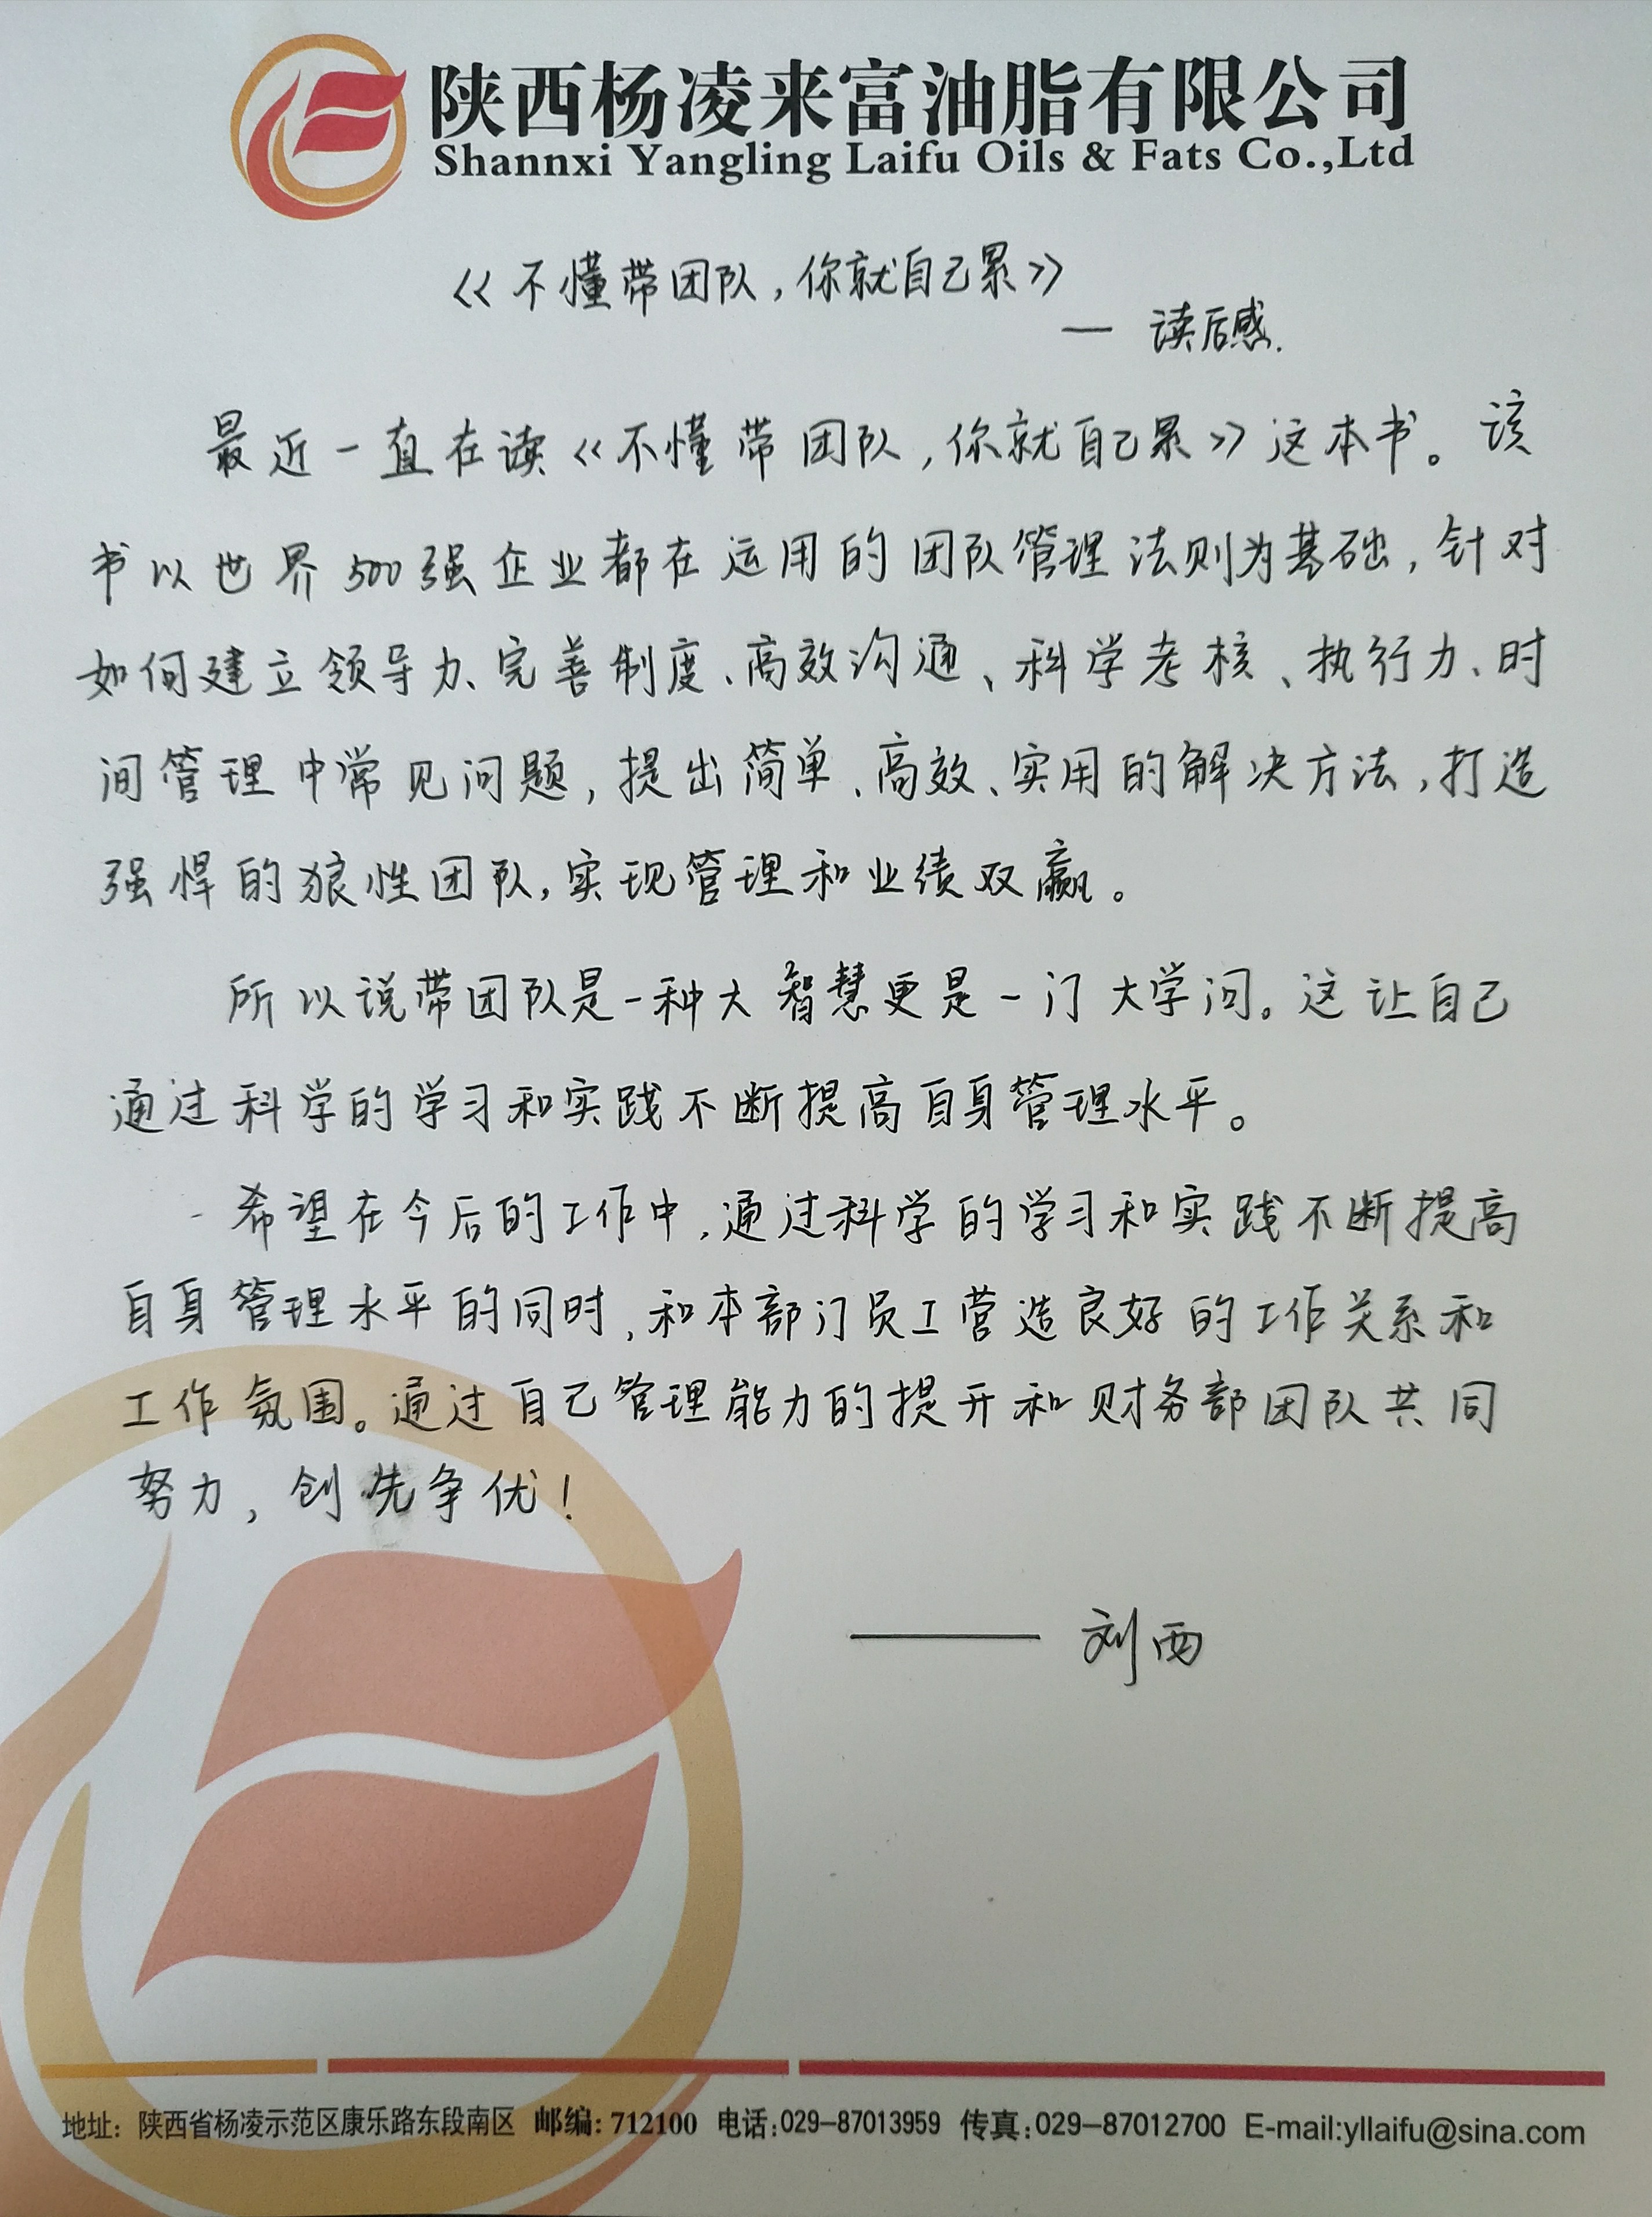 陕西杨凌来富油脂有限公司
Shannxi Yangling Laifu Oils & Fats Co.,Ltd
《不懂带团队,你就自己累》
— 读后感.
最近一直在读《不懂带团队,你就自己累》这本书。该
书以世界500强企业都在运用的团队管理法则为基础,针对
如何建立领导力、完善制度、高效沟通、科学考核、执行力、时
间管理中常见问题,提出简单、高效、实用的解决方法,打造
强悍的狼性团队,实现管理和业绩双赢。
所以说带团队是一种大智慧更是一门大学问。这让自己
通过科学的学习和实践不断提高自身管理水平。
希望在今后的工作中,通过科学的学习和实践不断提高
自身管理水平的同时,和本部门员工营造良好的工作关系和
工作氛围。通过自己管理能力的提升和财务部团队共同
努力,创先争优!
—— 刘西
地址:陕西省杨凌示范区康乐路东段南区 邮编:712100 电话:029-87013959 传真:029-87012700 E-mail:yllaifu@sina.com